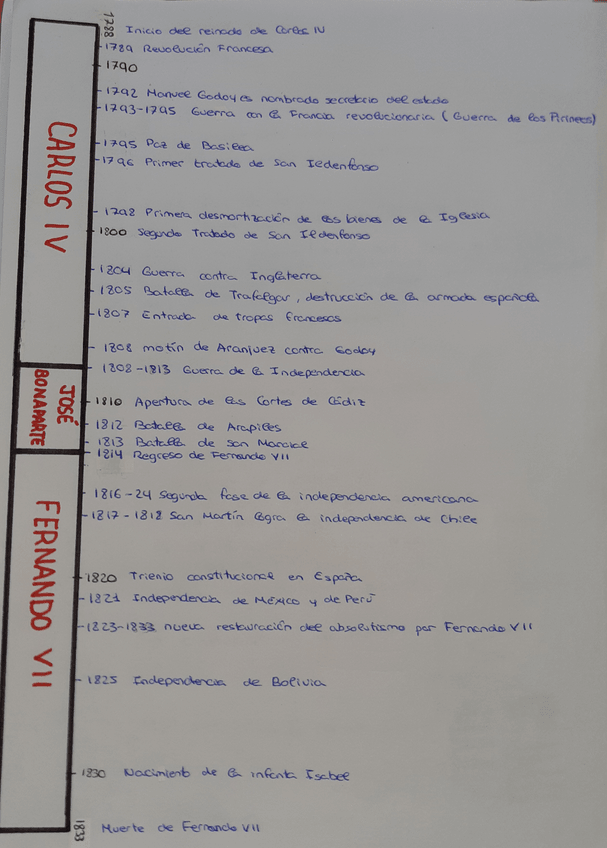 1788 Inicio del reinado de Carlos IV
1789 Revolución Francesa
1790
1792 Manuel Godoy es nombrado secretario del estado
1793-1795 Guerra con la Francia revolucionaria (Guerra de los Pirineos)
1795 Paz de Basilea
1796 Primer tratado de San Ildenfonso
1798 Primera desmortización de los bienes de la Iglesia
1800 Segundo Tratado de San Ildenfonso
1804 Guerra contra Inglaterra
1805 Batalla de Trafalgar, destrucción de la armada española
1807 Entrada de tropas francesas
1808 motín de Aranjuez contra Godoy
1808-1813 Guerra de la Independencia
1810 Apertura de las Cortes de Cádiz
1812 Batalla de Arapiles
1813 Batalla de San Marcial
1814 Regreso de Fernando VII
1816-24 Segunda fase de la independencia americana
1817-1818 San Martín logra la independencia de Chile
1820 Trienio constitucional en España
1821 Independencia de México y de Perú
1823-1833 nueva restauración del absolutismo por Fernando VII
1825 Independencia de Bolivia
1830 Nacimiento de la infanta Isabel
1833 Muerte de Fernando VII
CARLOS IV
JOSÉ
BONAPARTE
FERNANDO VII